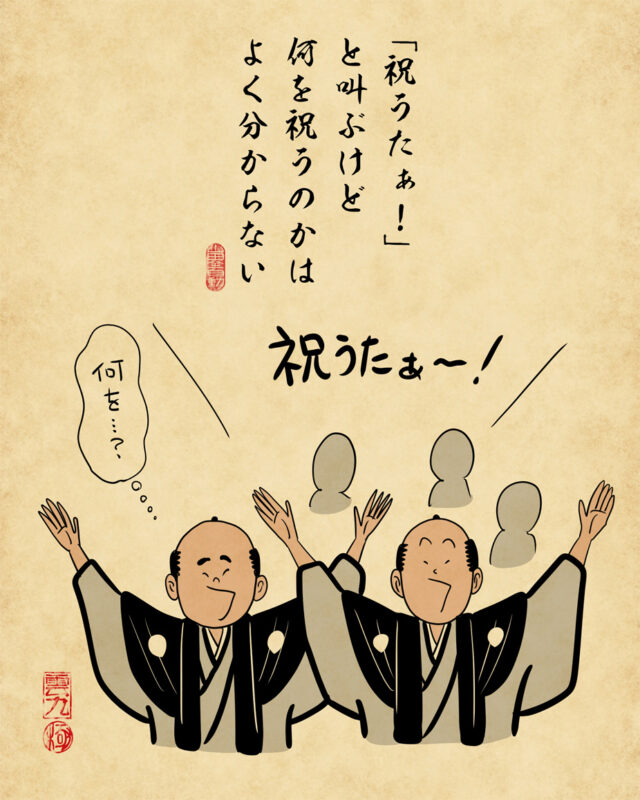 「祝うたぁ！」
と叫ぶけど
何を祝うのかは
よく分からない
祝うたぁ〜！
何を…？